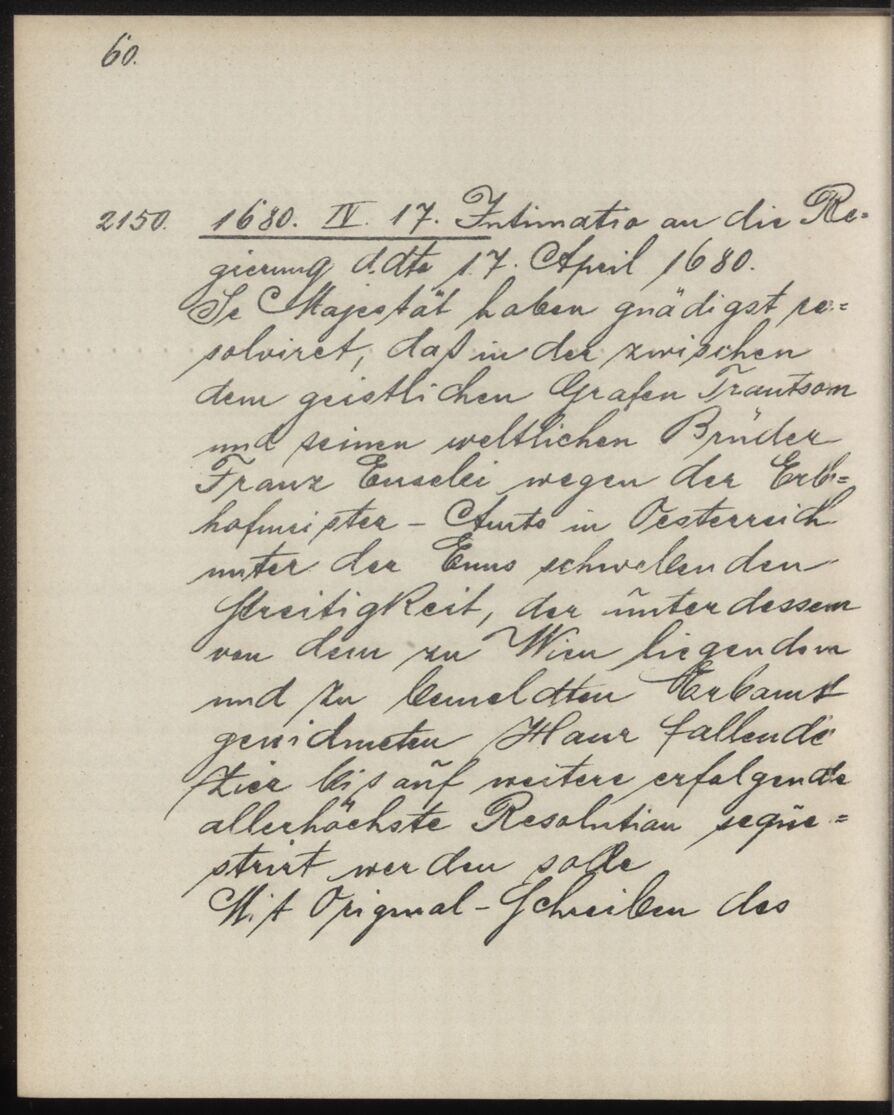 60.
2150. 1680. IV. 17. Intimatio an die Re=
gierung d.dto 17. April 1680.
Se Majestät haben gnädigst re=
solviret, daß in der zwischen
dem geistlichen Grafen Trautson
und seinen weltlichen Brüder
Franz Euselei wegen der Erb=
hofmeister - Amts in Oesterreich
unter der Enns schwebenden
Streitigkeit, der unterdessen
von dem zu Wien liegendem
und zu bemeldten Erbamt
gewidmeten Haus fallende
bis auf weitere erfolgende
allerhöchste Resolution seque=
strirt werden solle
Mit Original-Schreiben des